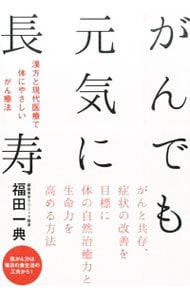 がんでも
元気に
長寿
漢方と現代医療で
体にやさしい
がん療法
がんと共存、
症状の改善を
目標に
体の自然治癒力と
生命力を
高める方法
福田一典
抗がん力は
毎日の食生活の
工夫から!